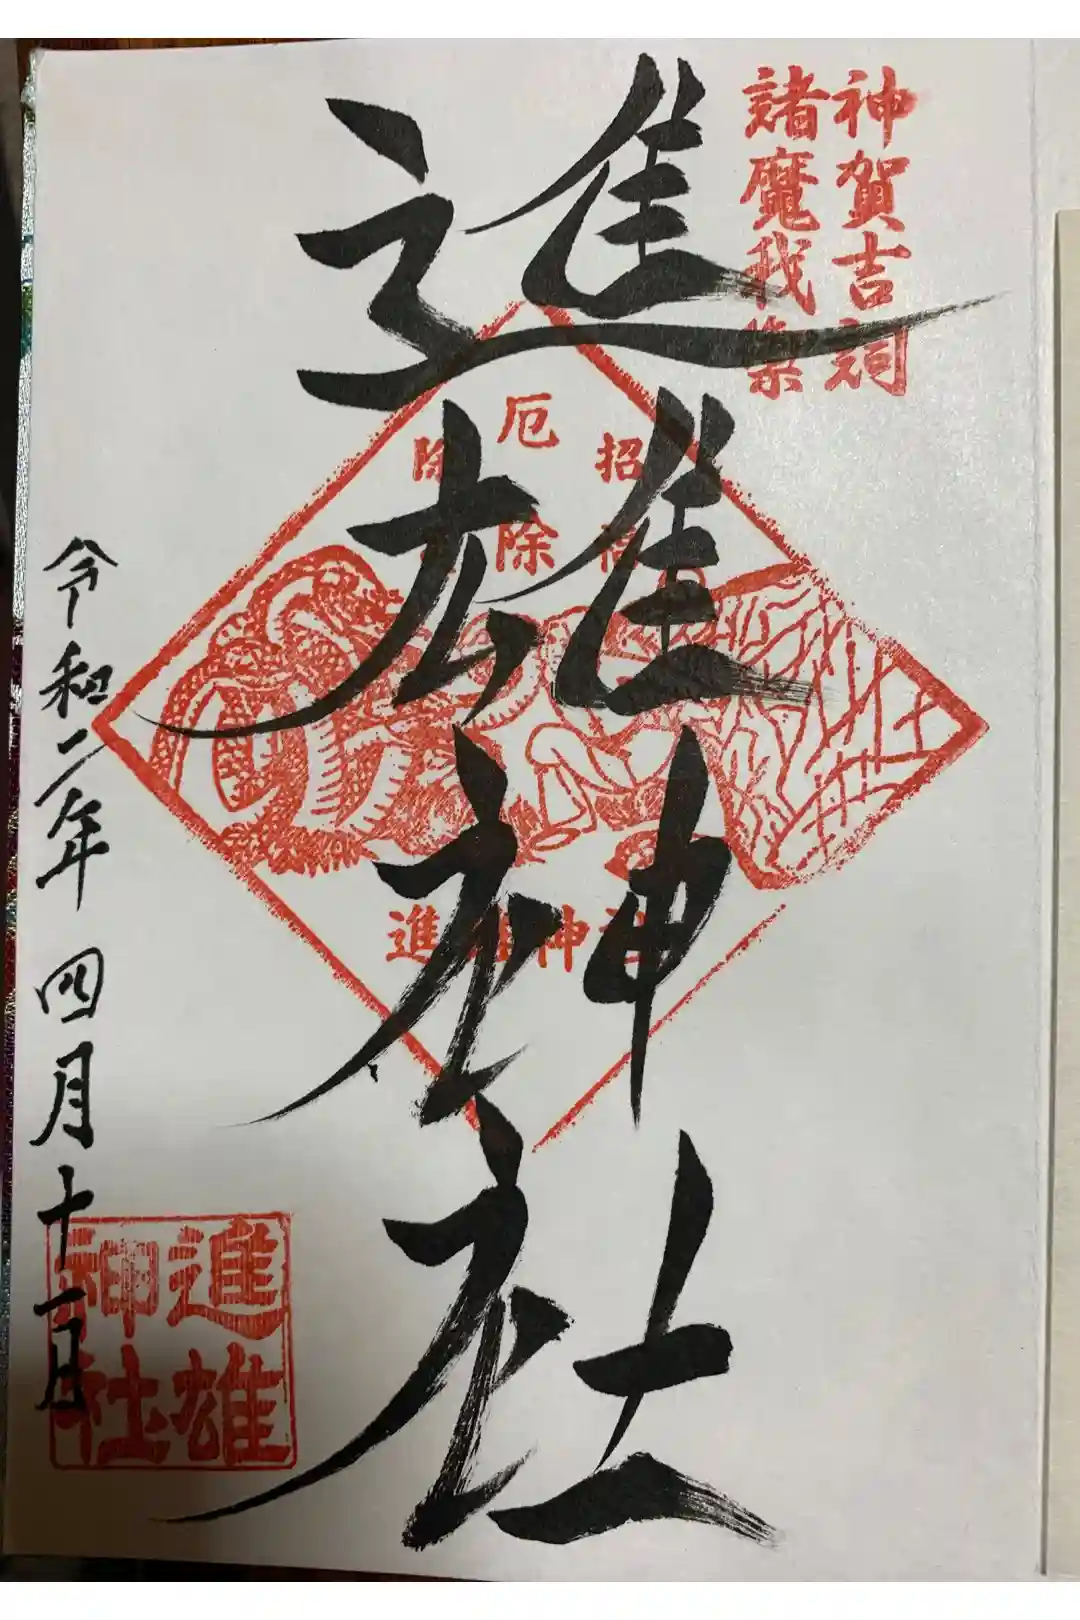 神賀吉詞
諸魔我集
進雄神社
招福
厄除
除
進雄神社
令和二年四月十二日
進雄
神社